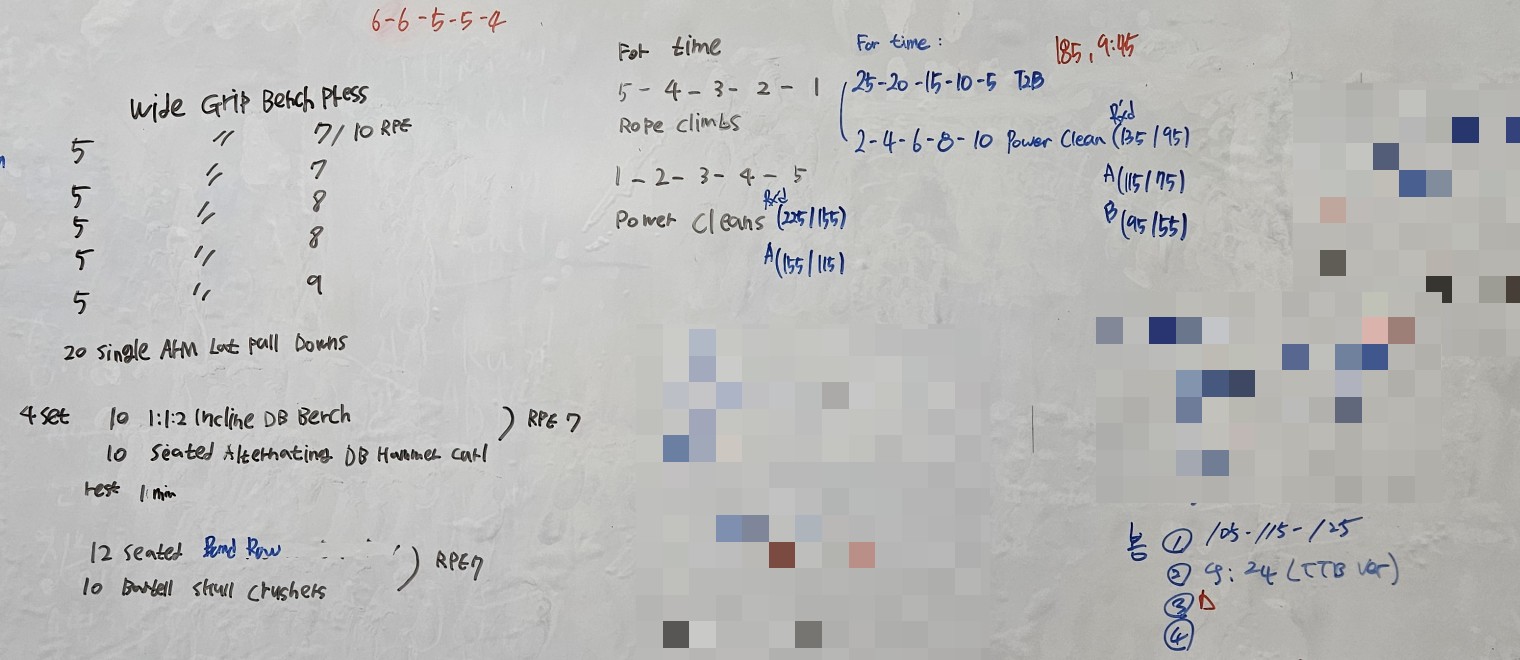 6-6-5-5-4
Wide Grip Bench Press
5 〃 7/10 RPE
5 〃 7
5 〃 8
5 〃 8
5 〃 9
20 Single Arm Lat pull Downs
4 set 10 1:1:2 Incline DB Bench
10 Seated Alternating DB Hammer curl
RPE 7
rest 1 min
12 Seated Band Row
10 Barbell skull crushers
RPE 7
For time
5-4-3-2-1
Rope climbs
1-2-3-4-5
Power Cleans Rxd (225/155)
A (155/115)
For time:
185, 9:45
25-20-15-10-5 T2B
2-4-6-8-10 Power Clean Rxd (135/95)
A (115/75)
B (95/55)
봉 ① 105-115-125
② 9:24 (TTB Ver)
③ D
④